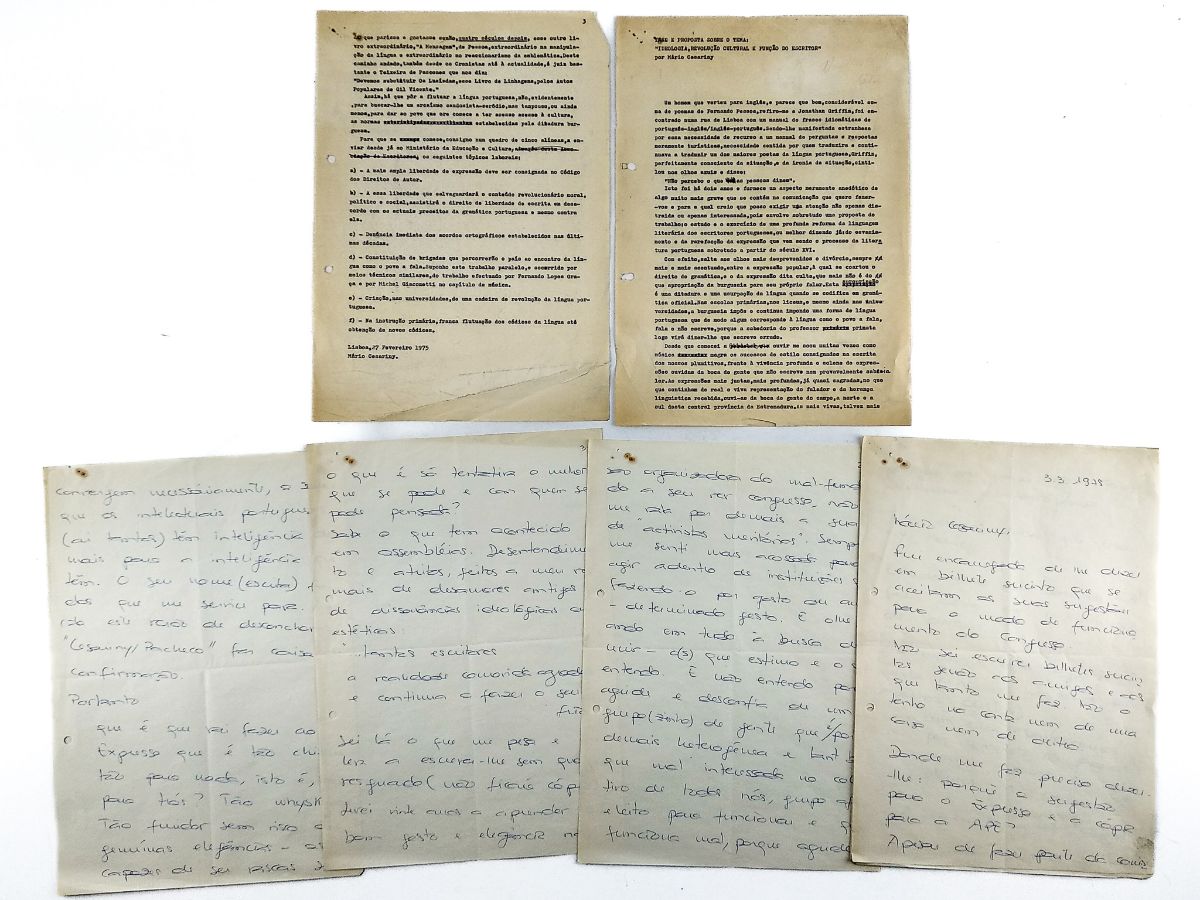 3
que pariceu e gostasse senão, quatro séculos depois, esse outro li
vro extraordinário, "A Mensagem", de Pessoa, extraordinário na manipula-
ção da língua e extraordinário no reaccionarismo da emblemática. Deste
caminho andado, também desde os Cronistas até à actualidade, é juiz bas-
tante o Teixeira de Pascoaes que nos diz:
"Devemos substituir Os Lusíadas, esse Livro de Linhagens, pelos Autos
Populares de Gil Vicente."
Assim, há que pôr a flutuar a língua portuguesa, não, evidentemente
, para buscar-lhe um arcaísmo saudosista-serôdio, mas tampouco, ou ainda
menos, para dar ao povo que ora comece a ter acesso acesso à cultura,
as normas estabelecidas pela ditadura bur-
guesa.
Para que se comece, consigno num quadro de cinco alíneas, a en-
viar desde já ao Ministério da Educação e Cultura,
os seguintes tópicos laborais:
a) - A mais ampla liberdade de expressão deve ser consignada no Código
dos Direitos de Autor.
b) - A essa liberdade que salvaguardará o conteúdo revolucionário moral,
político e social, assistirá o direito de liberdade de escrita em desa-
cordo com os actuais preceitos da gramática portuguesa e mesmo contra
ela.
c) - Denúncia imediata dos acordos ortográficos estabelecidos nas últi-
mas décadas.
d) - Constituição de brigadas que percorrerão o país ao encontro da lín-
gua como o povo a fala. Suponho este trabalho paralelo, e socorrido por
meios técnicos similares, do trabalho efectuado por Fernando Lopes Gra-
ça e por Michel Giacometti no capítulo de música.
e) - Criação, nas universidades, de uma cadeira de revolução da língua por-
tuguesa.
f) - Na instrução primária, franca flutuação dos códices da língua até
obtenção de novos códices.
Lisboa, 27 Fevereiro 1975
Mário Cesariny.
TESE E PROPOSTA SOBRE O TEMA:
"IDEOLOGIA, REVOLUÇÃO CULTURAL E FUNÇÃO DO ESCRITOR"
por Mário Cesariny
Um homem que verteu para inglês, e parece que bem, considerável so-
ma de poemas de Fernando Pessoa, refiro-me a Jonathan Griffin, foi en-
contrado numa rua de Lisboa com um manual de frases idiomáticas de
português-inglês/inglês-português. Sendo-lhe manifestada estranheza
por essa necessidade de recurso a um manual de perguntas e respostas
meramente turísticas, necessidade sentida por quem traduzira e conti-
nuava a traduzir um dos maiores poetas da língua portuguesa, Griffin,
perfeitamente consciente da situação, e da ironia da situação, cinti-
lou nos olhos azuis e disse:
"Não percebo o que as pessoas dizem".
Isto foi há dois anos e fornece um aspecto meramente anedótico de
algo muito mais grave que se contém na comunicação que quero fazer-
-vos e para a qual creio que posso exigir uma atenção não apenas dis-
traída ou apenas interessada, pois envolve sobretudo uma proposta de
trabalho: o estudo e o exercício de uma profunda reforma da linguagem
literária dos escritores portugueses, ou melhor dizendo já: do esvazia-
mento e da rarefacção da expressão que vem sendo o processo da litera
tura portuguesa sobretudo a partir do século XVI.
Com efeito, salta aos olhos mais desprevenidos o divórcio, sempre
mais e mais acentuado, entre a expressão popular, à qual se cortou o
direito de gramática, e o da expressão dita culta, que mais não é do
que apropriação da burguesia para seu próprio falar. Esta apropriação
é uma ditadura e uma usurpação da língua quando se codifica em gramá-
tica oficial. Nas escolas primárias, nos liceus, e mesmo ainda nas Univer
versidades, a burguesia impôs e continua impondo uma forma de língua
portuguesa que de modo algum corresponde à língua como o povo a fala,
fala e não escreve, porque a sabedoria do professor primata
logo virá dizer-lhe que escreve errado.
Desde que comecei a ouvir me soou muitas vezes como
música negra os sucessos de estilo consignados na escrita
dos nossos plumitivos, frente à vivência profunda e solene de expres-
sões ouvidas da boca de gente que não escreve nem provavelmente saberia
ler. As expressões mais justas, mais profundas, já quasi sagradas, no que
que continham de real e viva representação do falador e da herança
linguística recebida, ouvi-as da boca de gente do campo, a norte e a
sul desta central província da Estremadura. As mais vivas, talvez mais
convergem necessariamente, a
que os intelectuais portugues
(ai tantos) têm inteligência
mais para a inteligência
têm. O seu nome (escuta)
dos que me serviu para
"Cesariny/Pacheco" foi coisa
confirmação.
Portanto
que é que vai fazer ao
Expresso que é tão
tão para nada, isto é,
para tiós? Tão whysk
Tão fundor sem risco
genuínas elegâncias -
capazes de ser riscos
o que é só tentativa o melhor
que se pode e com quem se
pode pensada?
Sabe o que tem acontecido
em assembléias. Desentendimen
to e atritos, feitos a meu ver
mais de desamores antigos
de dissonâncias ideológicas ou
estéticas:
"tantos escritores
a realidade comovida agrade
e continua a fazer o seu
frio
Sei lá o que me pesa e
leva a escrever-lhe sem qual
resguardo (não ficou cóp
Levei vinte anos a aprender
bom gesto e elegância
são organizadora do mal-fund
do a seu ver congresso, não
me rala por demais a sua
de "activistas meritórios". Sempr
me senti mais acossada para
agir adentro de instituições
fazendo-o por gosto ou
- determinado gesto. E olhe
ando em tudo à busca d
unir - a(s) que estimo e o
entendo. E não entendo por
agride e desconfia de um
grupo(zinho) de gente que é/po
demais heterogénea e tant
que mal interessada no col
tivo de todos nós, grupo
eleito para funcionar e
funciona mal, porque aquele
3.3.1975
Mário Cesariny,
Fui encarregada de lhe dizer
em bilhete sucinto que se
aceitam as suas sugestões
para o modo de funciona
mento do Congresso.
Não sei escrever bilhetes sucin
tos senão aos amigos e aos
que tanto me faz. Não o
tenho na conta nem de uma
coisa nem de outra.
Donde me faz preciso dizer-
-lhe: porquê a sugestão
para o Expresso e a cópia
para a APE?
Apesar de fazer parte da comis